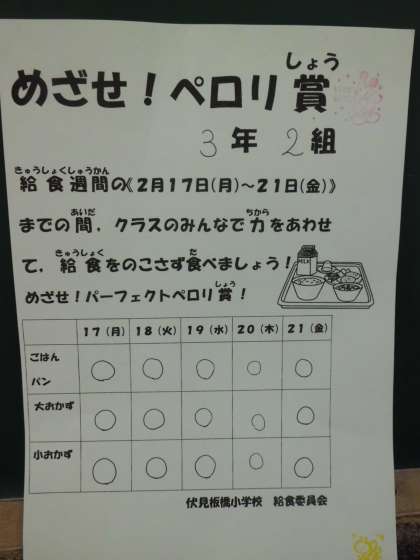 めざせ！ペロリ賞
しょう
3年 2組
きゅうしょくしゅうかん
給食週間の《2月17日(月)～21日(金)》
あいだ ちから
までの間，クラスのみんなで力をあわせ
きゅうしょく た
て，給食をのこさず食べましょう！
めざせ！パーフェクトペロリ賞！
MILK
17(月) 18(火) 19(水) 20(木) 21(金)
ごはん ○ ○ ○ ○ ○
パン
大おかず ○ ○ ○ ○ ○
小おかず ○ ○ ○ ○ ○
伏見板橋小学校 給食委員会